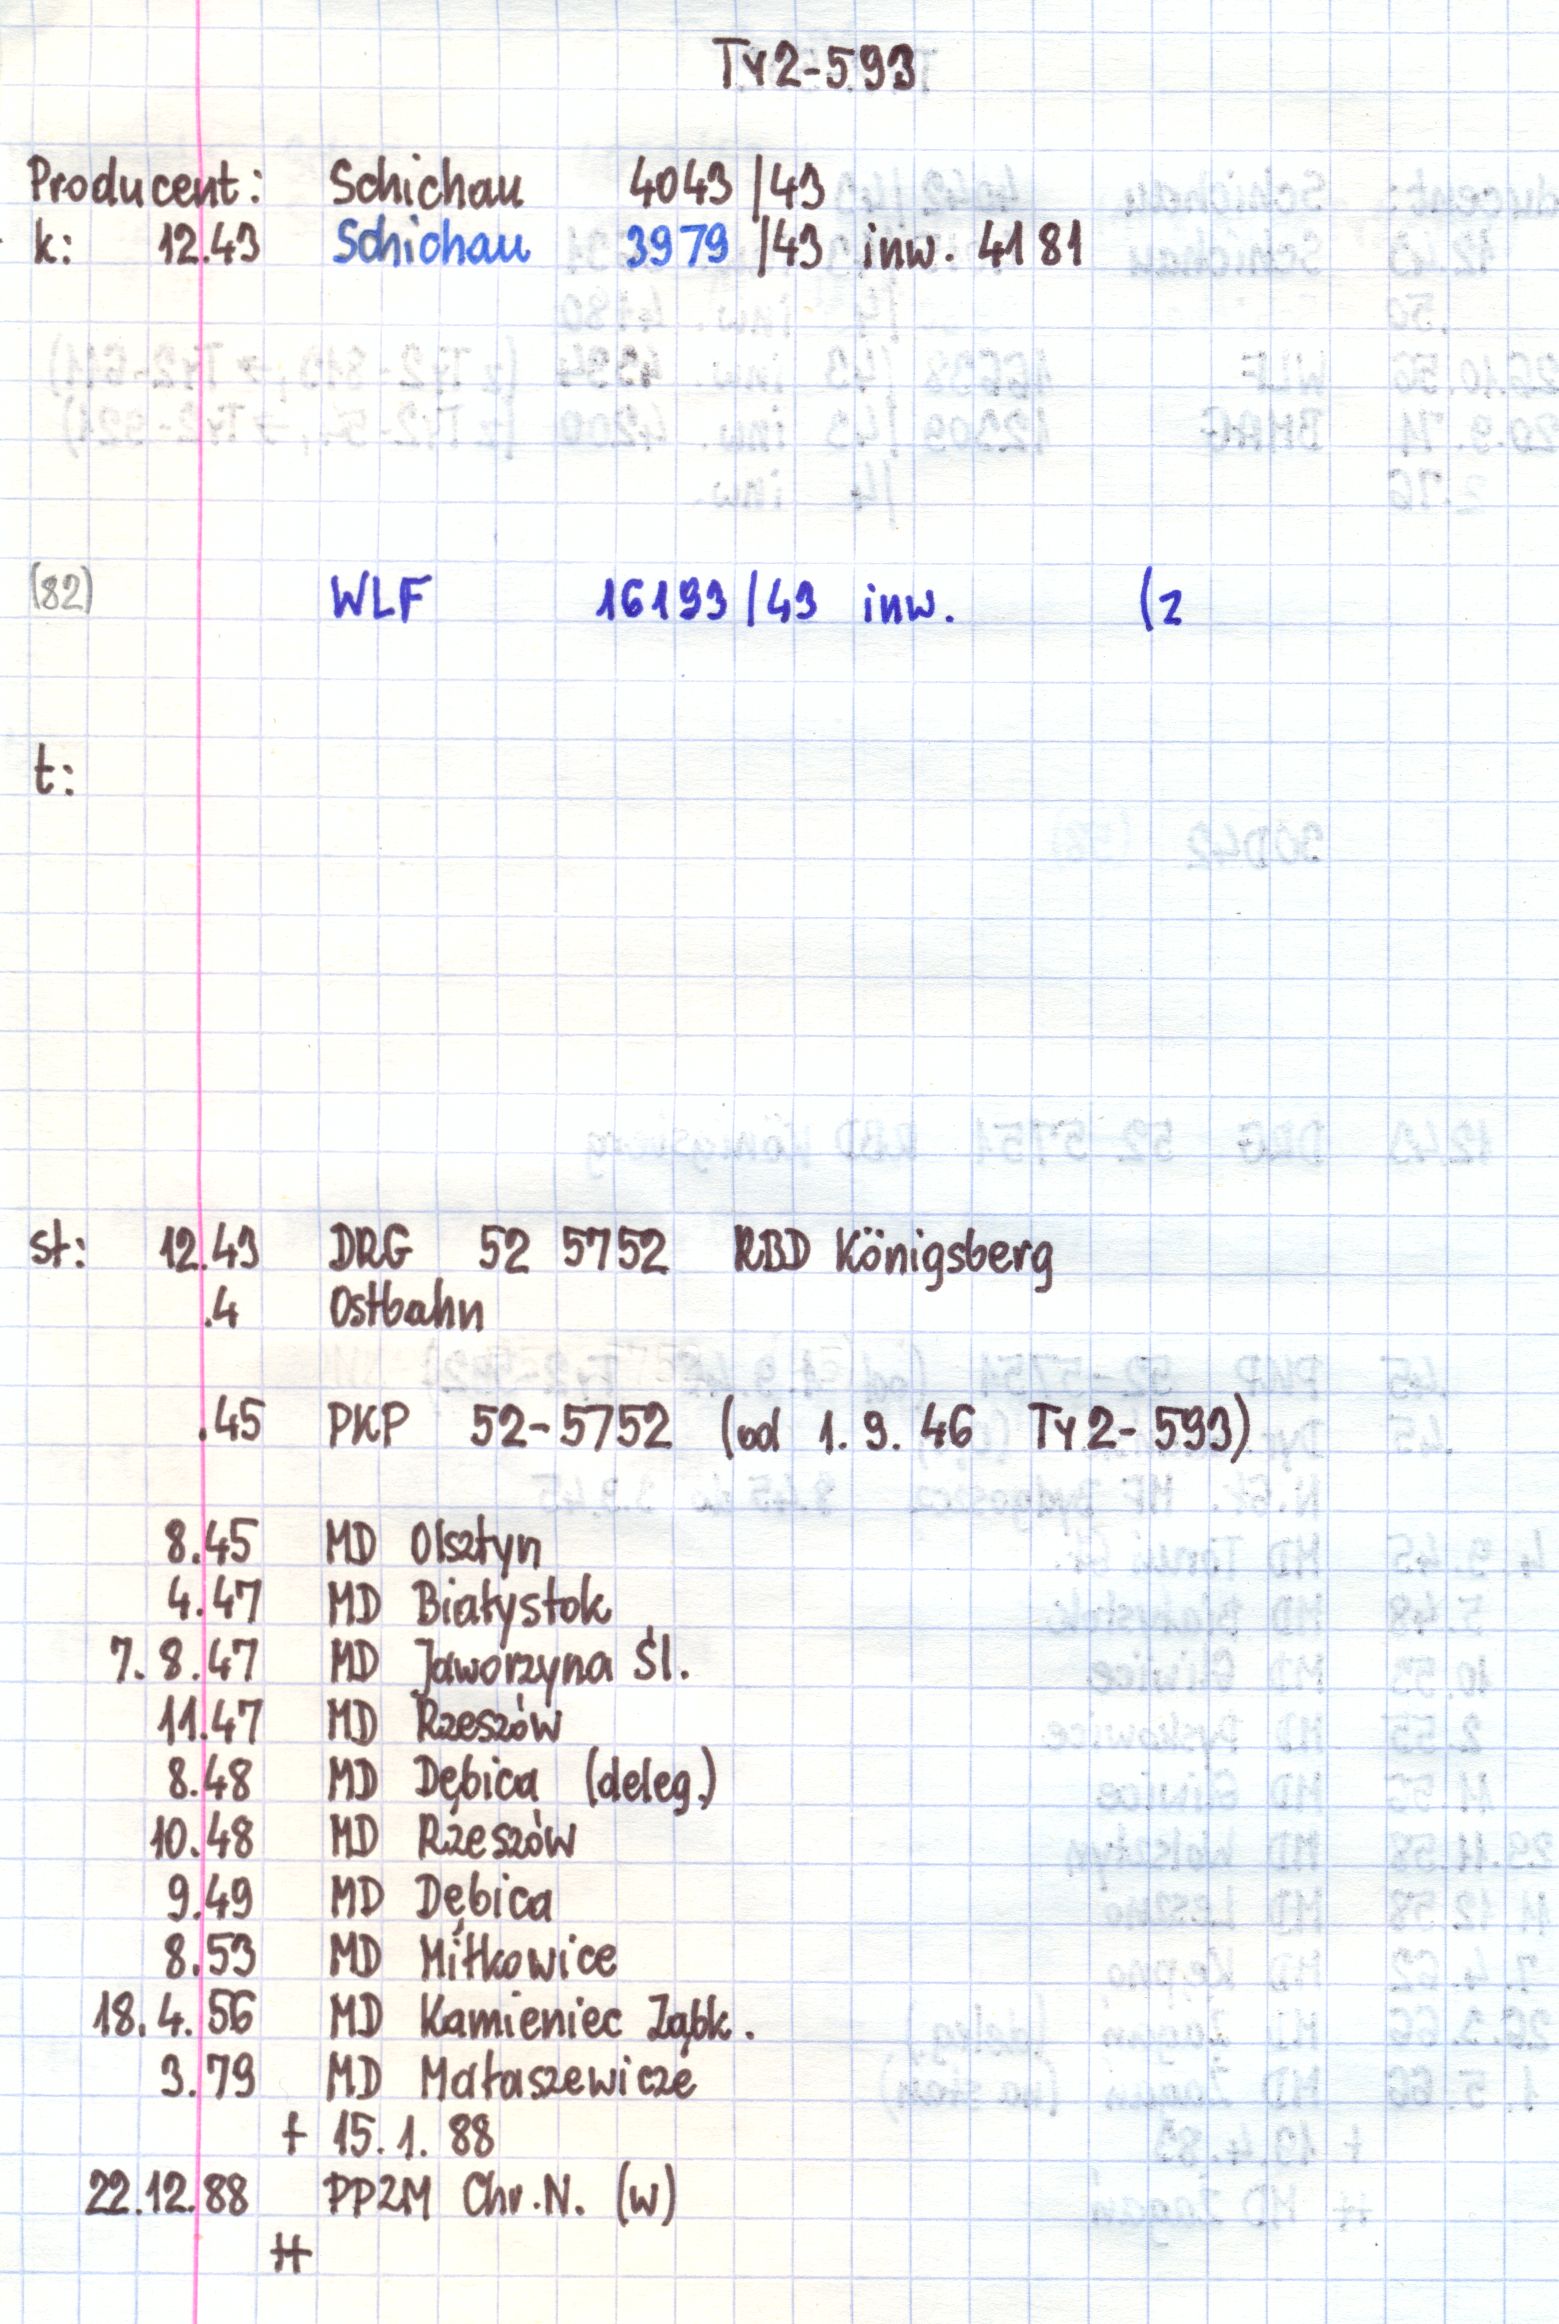 Ty2-593
Producent: Schichau 4043/43
k: 12.43 Schichau 3979/43 inw. 4181
(82) WLF 16193/43 inw. (z
t:
st: 12.43 DRG 52 5752 RBD Königsberg
.4 Ostbahn
.45 PKP 52-5752 (od 1.9.46 Ty2-593)
8.45 MD Olsztyn
4.47 MD Białystok
7.8.47 MD Jaworzyna Śl.
11.47 MD Rzeszów
8.48 MD Dębica (deleg.)
10.48 MD Rzeszów
9.49 MD Dębica
8.53 MD Miłkowice
18.4.56 MD Kamieniec Ząbk.
3.79 MD Małaszewicze
+ 15.1.88
22.12.88 PPZM Chr.N. (w)
++